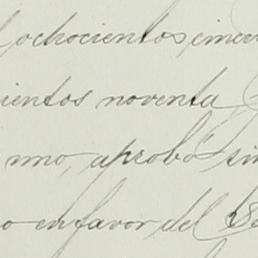 ochocientos, cincu
cientos noventa
uno, aprobó sin
o en favor del